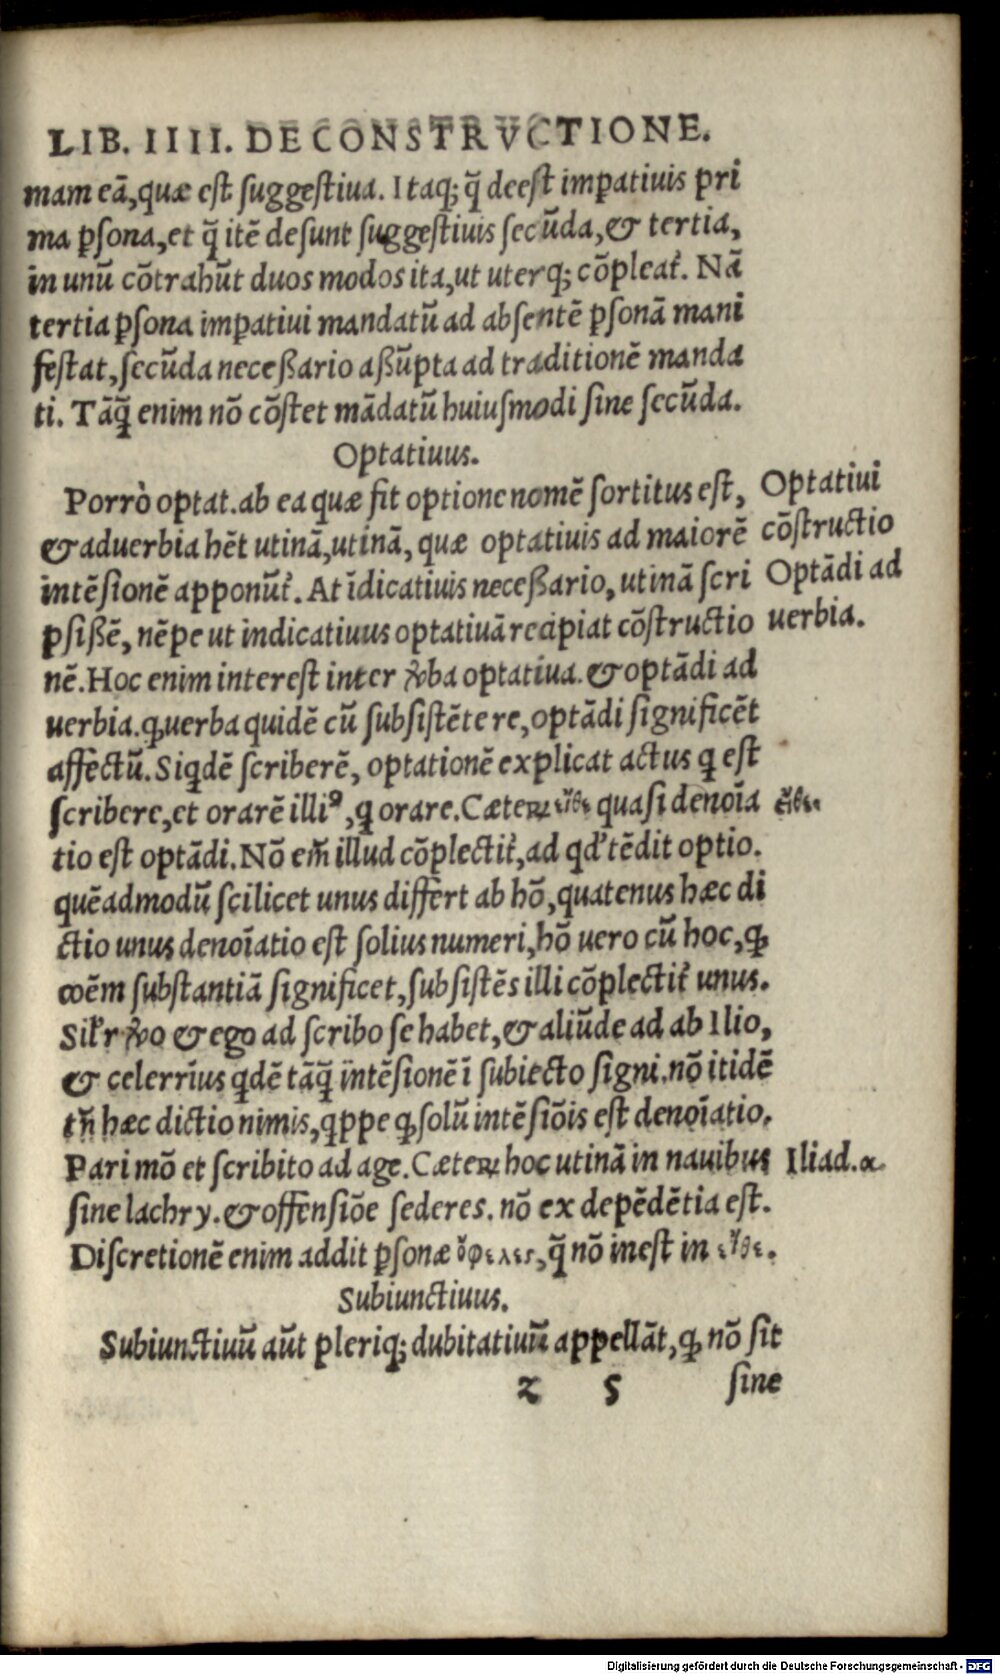 LIB. IIII. DE CONSTRVCTIONE.
mam eã, quæ est suggestiua. Itaq; q̃ deest imꝑatiuis pri
ma ꝑsona, et q̃ itẽ desunt suggestiuis secũda, & tertia,
in unũ cõtrahũt duos modos ita, ut uterq; cõpleat᷑. Nã
tertia ꝑsona imꝑatiui mandatũ ad absentẽ ꝑsonã mani
festat, secũda necessario assũpta ad traditionẽ manda
ti. Tãq̃ enim nõ cõstet mãdatũ huiusmodi sine secũda.
Optatiuus.
Porrò optat. ab ea quæ fit optione nomẽ sortitus est,
& aduerbia hẽt utinã, utinã, quæ optatiuis ad maiorẽ
intẽsionẽ apponũt᷑. At ĩdicatiuis necessario, utinã scri
ꝑsissẽ, nẽpe ut indicatiuus optatiuã recipiat cõstructio
nẽ. Hoc enim interest inter ꝟba optatiua. & optãdi ad
uerbia. ꝙ uerba quidẽ cũ subsistẽte re, optãdi significẽt
affectũ. Siqdẽ scriberẽ, optationẽ explicat actus q est
scribere, et orarẽ illiꝰ, q orare. Cæteꝝ εἴθε quasi denoĩa
tio est optãdi. Nõ em̃ illud cõplectit᷑, ad qd' tẽdit optio.
quẽadmodũ scilicet unus differt ab hõ, quatenus hæc di
ctio unus denoĩatio est solius numeri, hõ uero cũ hoc, ꝙ
oẽm substantiã significet, subsistẽs illi cõplectit᷑ unus.
Sil'r ꝟo & ego ad scribo se habet, & aliũde ad ab Ilio,
& celerrĩus qdẽ tãq̃ intẽsionẽ ĩ subiecto signi. nõ itidẽ
tñ hæc dictio nimis, qppe ꝙ solũ intẽsiõis est denoĩatio.
Pari mõ et scribito ad age. Cæteꝝ hoc utinã in nauibus
sine lachry. & offensiõe sederes. nõ ex depẽdẽtia est.
Discretionẽ enim addit ꝑsonæ ὄφελες, q̃ nõ inest in εἴθε.
Subiunctiuus.
Subiunctiuũ aũt pleriq; dubitatiuũ appellãt, ꝙ nõ sit
z 5 sine
Optatiui
cõstructio
Optãdi ad
uerbia.
εἴθε.
Iliad. α.
Digitalisierung gefördert durch die Deutsche Forschungsgemeinschaft - DFG